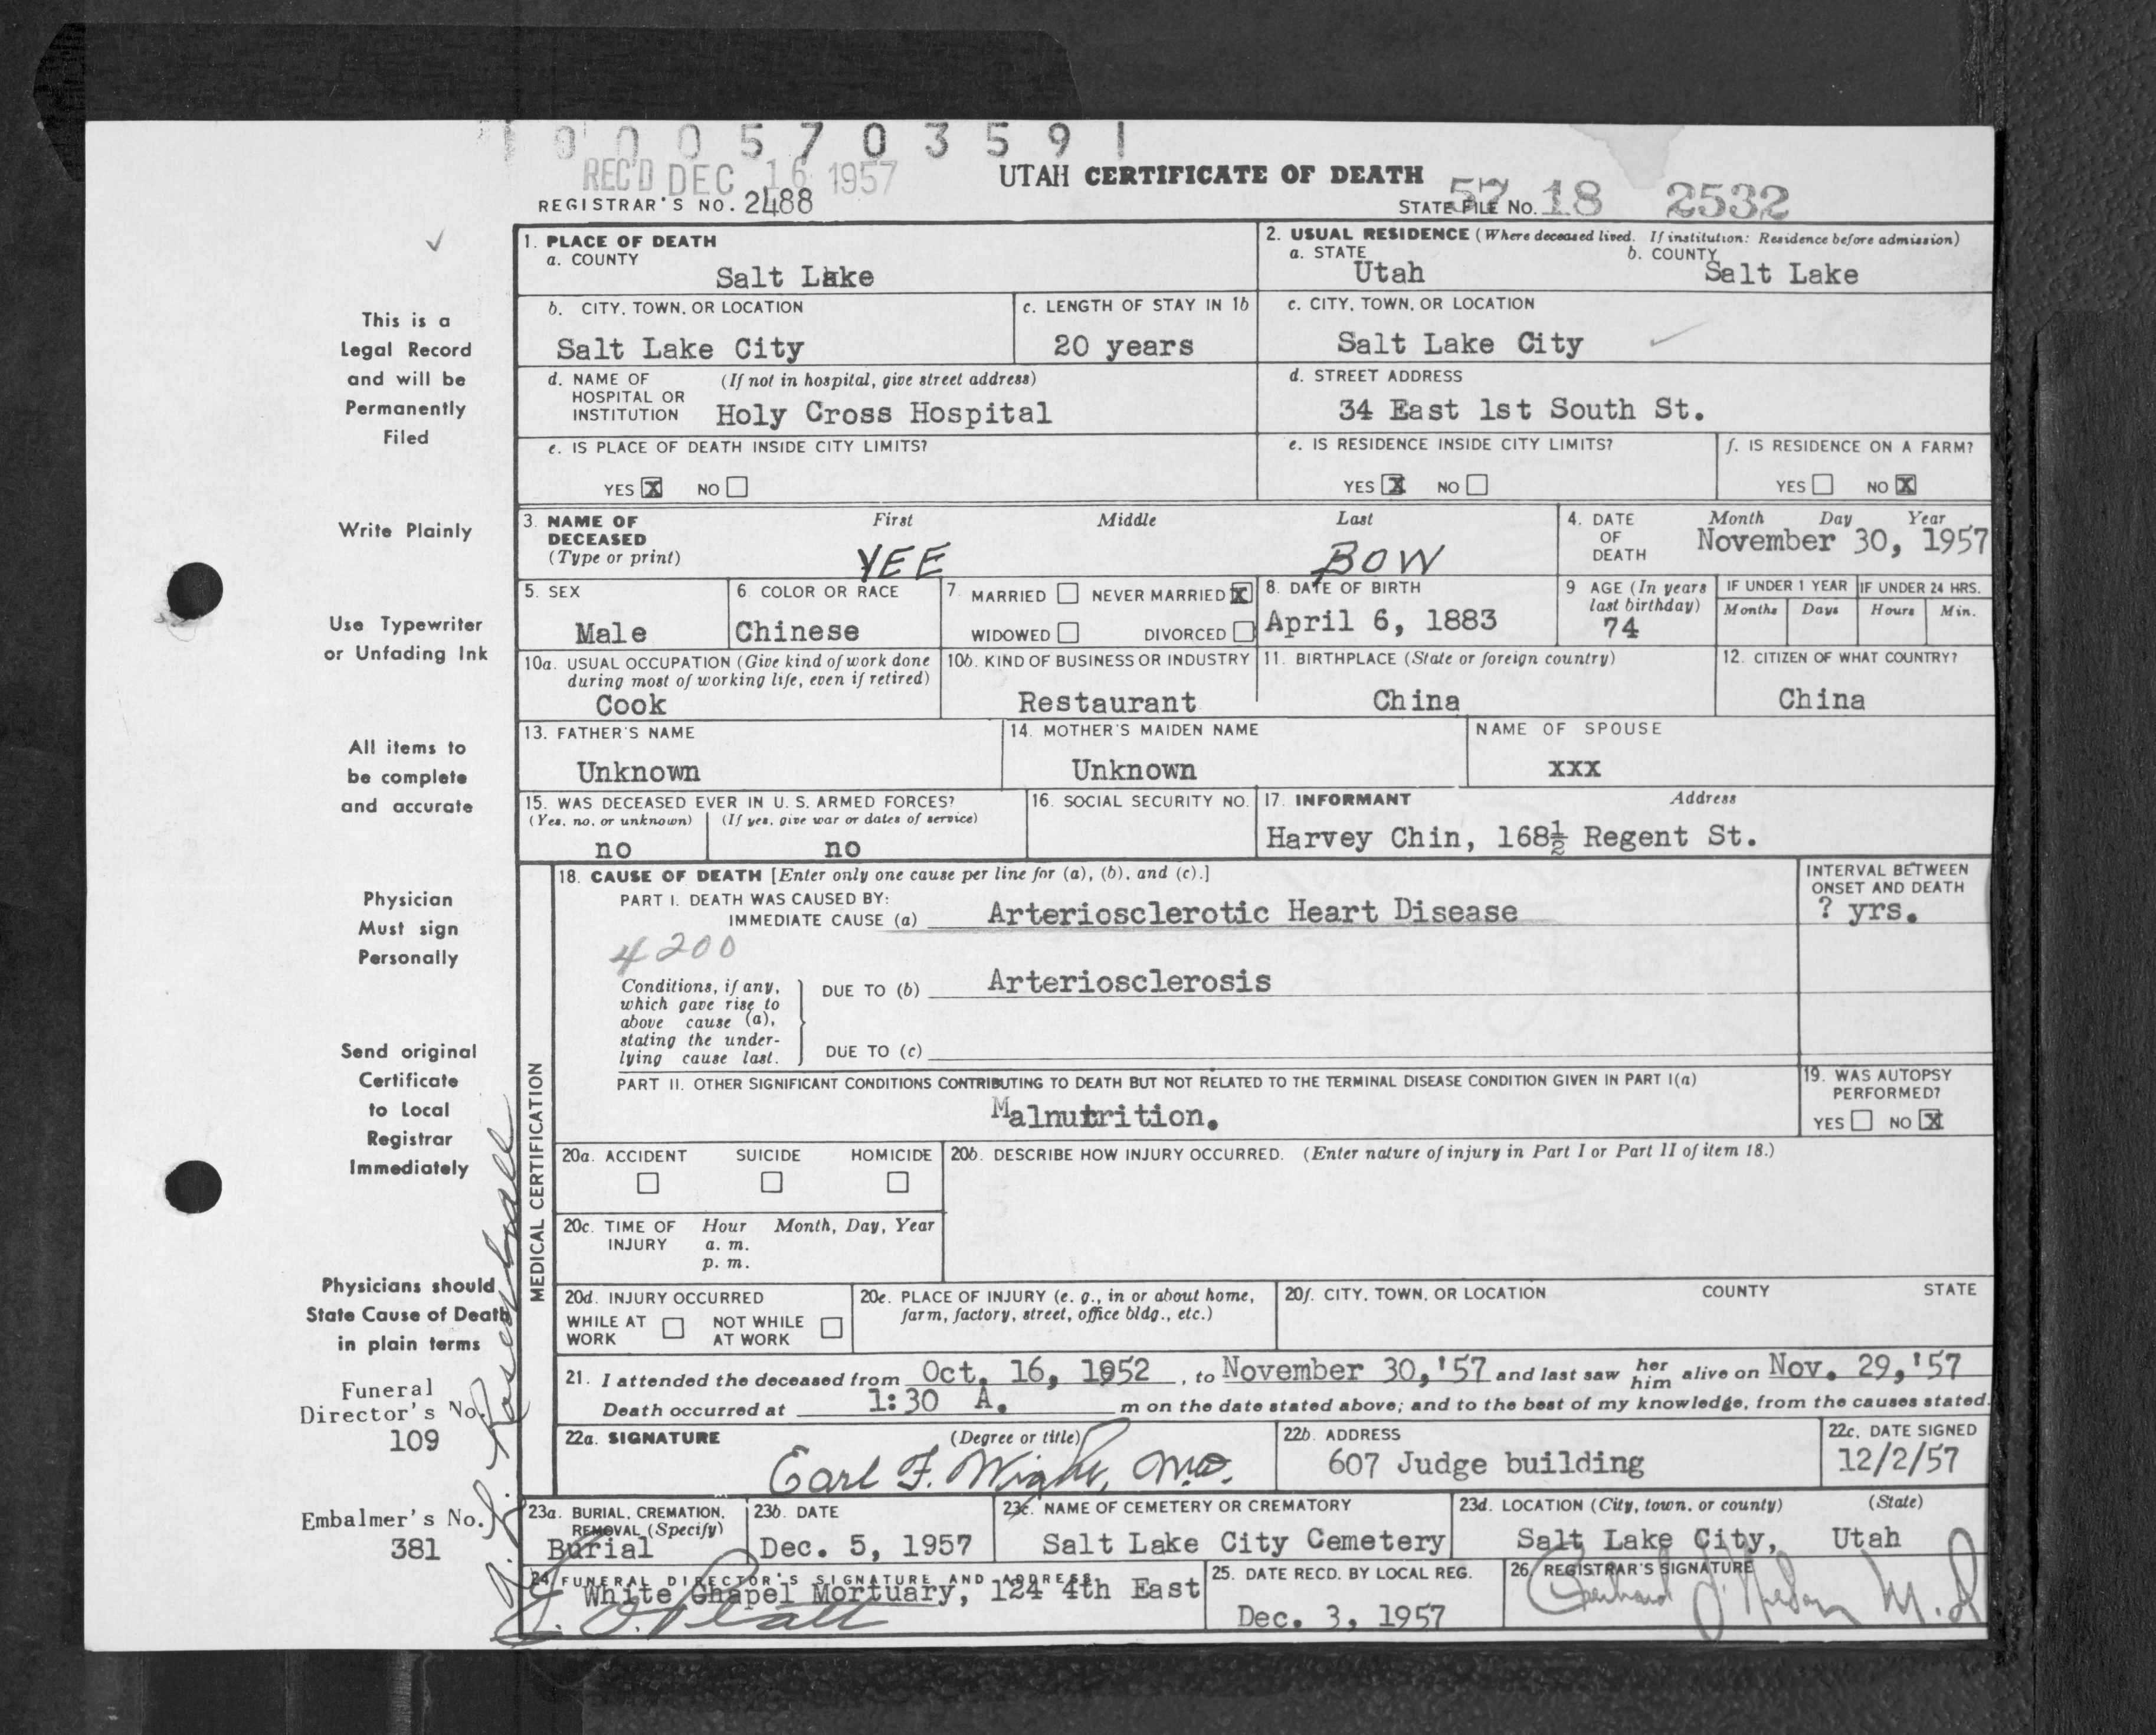 1 0 0 0 5 7 0 3 5 9 1
REC'D DEC 16 1957
UTAH CERTIFICATE OF DEATH
REGISTRAR'S NO. 2488
STATE FILE NO. 57 18 2532
This is a
Legal Record
and will be
Permanently
Filed
Write Plainly
Use Typewriter
or Unfading Ink
All items to
be complete
and accurate
Physician
Must sign
Personally
Send original
Certificate
to Local
Registrar
Immediately
Physicians should
State Cause of Death
in plain terms
Funeral
Director's No.
109
Embalmer's No.
381
1. PLACE OF DEATH
a. COUNTY
Salt Lake
2. USUAL RESIDENCE (Where deceased lived. If institution: Residence before admission)
a. STATE
Utah
b. COUNTY
Salt Lake
b. CITY, TOWN, OR LOCATION
Salt Lake City
c. LENGTH OF STAY IN 1b
20 years
c. CITY, TOWN, OR LOCATION
Salt Lake City
d. NAME OF (If not in hospital, give street address)
HOSPITAL OR
INSTITUTION Holy Cross Hospital
d. STREET ADDRESS
34 East 1st South St.
e. IS PLACE OF DEATH INSIDE CITY LIMITS?
YES X NO
e. IS RESIDENCE INSIDE CITY LIMITS?
YES X NO
f. IS RESIDENCE ON A FARM?
YES NO X
3. NAME OF
DECEASED
(Type or print)
First Middle Last
YEE BOW
4. DATE
OF
DEATH
Month Day Year
November 30, 1957
5. SEX
Male
6. COLOR OR RACE
Chinese
7. MARRIED NEVER MARRIED X
WIDOWED DIVORCED
8. DATE OF BIRTH
April 6, 1883
9 AGE (In years
last birthday)
74
IF UNDER 1 YEAR
Months Days
IF UNDER 24 HRS.
Hours Min.
10a. USUAL OCCUPATION (Give kind of work done
during most of working life, even if retired)
Cook
10b. KIND OF BUSINESS OR INDUSTRY
Restaurant
11. BIRTHPLACE (State or foreign country)
China
12. CITIZEN OF WHAT COUNTRY?
China
13. FATHER'S NAME
Unknown
14. MOTHER'S MAIDEN NAME
Unknown
NAME OF SPOUSE
xxx
15. WAS DECEASED EVER IN U. S. ARMED FORCES?
(Yes, no, or unknown) (If yes, give war or dates of service)
no no
16. SOCIAL SECURITY NO.
17. INFORMANT Address
Harvey Chin, 168½ Regent St.
MEDICAL CERTIFICATION
18. CAUSE OF DEATH [Enter only one cause per line for (a), (b), and (c).]
PART I. DEATH WAS CAUSED BY:
IMMEDIATE CAUSE (a) Arteriosclerotic Heart Disease
INTERVAL BETWEEN
ONSET AND DEATH
? yrs.
4200
Conditions, if any,
which gave rise to
above cause (a),
stating the under-
lying cause last.
DUE TO (b) Arteriosclerosis
DUE TO (c)
PART II. OTHER SIGNIFICANT CONDITIONS CONTRIBUTING TO DEATH BUT NOT RELATED TO THE TERMINAL DISEASE CONDITION GIVEN IN PART I(a)
Malnutrition.
19. WAS AUTOPSY
PERFORMED?
YES NO X
20a. ACCIDENT SUICIDE HOMICIDE
20b. DESCRIBE HOW INJURY OCCURRED. (Enter nature of injury in Part I or Part II of item 18.)
20c. TIME OF Hour Month, Day, Year
INJURY a. m.
p. m.
20d. INJURY OCCURRED
WHILE AT NOT WHILE
WORK AT WORK
20e. PLACE OF INJURY (e. g., in or about home,
farm, factory, street, office bldg., etc.)
20f. CITY, TOWN, OR LOCATION COUNTY STATE
21. I attended the deceased from Oct. 16, 1952, to November 30,'57 and last saw her him alive on Nov. 29,'57
Death occurred at 1:30 A. m on the date stated above; and to the best of my knowledge, from the causes stated.
22a. SIGNATURE (Degree or title)
Earl F. Wight, M.D.
22b. ADDRESS
607 Judge building
22c. DATE SIGNED
12/2/57
23a. BURIAL, CREMATION,
REMOVAL (Specify)
Burial
23b. DATE
Dec. 5, 1957
23c. NAME OF CEMETERY OR CREMATORY
Salt Lake City Cemetery
23d. LOCATION (City, town, or county) (State)
Salt Lake City, Utah
24. FUNERAL DIRECTOR'S SIGNATURE AND ADDRESS
White Chapel Mortuary, 124 4th East
25. DATE RECD. BY LOCAL REG.
Dec. 3, 1957
26. REGISTRAR'S SIGNATURE